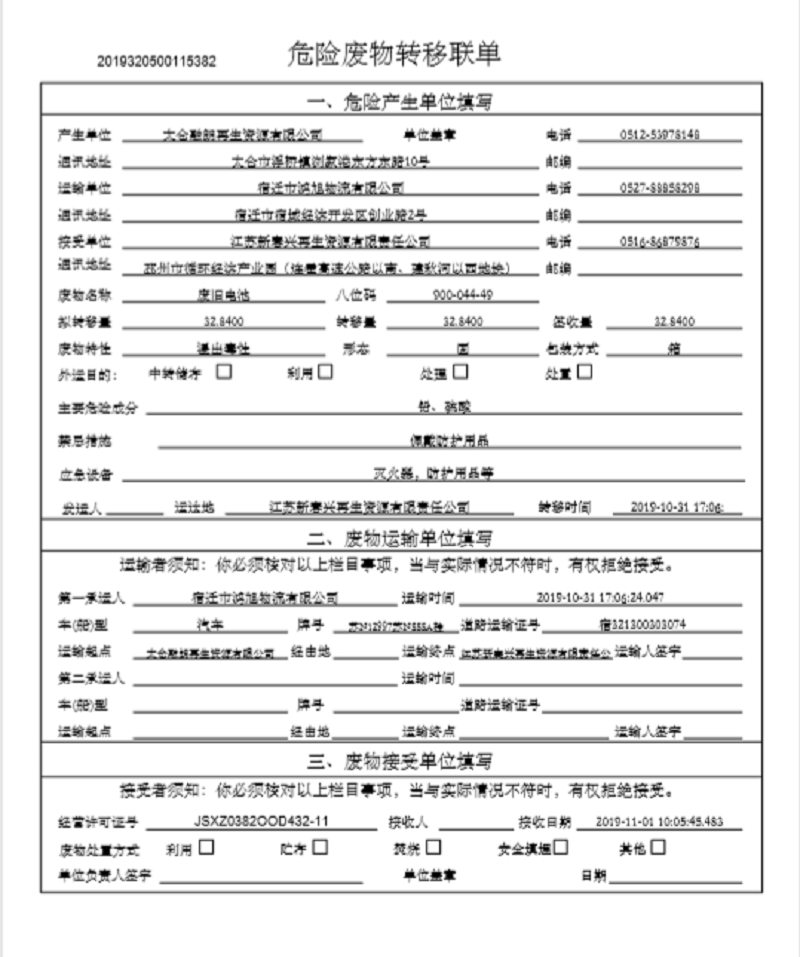 2019320500115382 危险废物转移联单
一、危险产生单位填写
产生单位 太仓融朗再生资源有限公司 单位盖章 电话 0512-53978148
通讯地址 太仓市浮桥镇浏家港东方东路10号 邮编
运输单位 宿迁市鸿旭物流有限公司 电话 0527-88858298
通讯地址 宿迁市宿城经济开发区创业路2号 邮编
接受单位 江苏新春兴再生资源有限责任公司 电话 0516-86879876
通讯地址 邳州市循环经济产业园（连霍高速公路以南、建秋河以西地块） 邮编
废物名称 废旧电池 八位码 900-044-49
拟转移量 32.8400 转移量 32.8400 签收量 32.8400
废物特性 浸出毒性 形态 固 包装方式 箱
外运目的： 中转储存 □ 利用 □ 处理 □ 处置 □
主要危险成分 铅、硫酸
禁忌措施 佩戴防护用品
应急设备 灭火器，防护用品等
发运人 运达地 江苏新春兴再生资源有限责任公司 转移时间 2019-10-31 17:06:
二、废物运输单位填写
运输者须知：你必须核对以上栏目事项，当与实际情况不符时，有权拒绝接受。
第一承运人 宿迁市鸿旭物流有限公司 运输时间 2019-10-31 17:06:24.047
车(船)型 汽车 牌号 道路运输证号 宿321300303074
运输起点 太仓融朗再生资源有限公司 经由地 运输终点 江苏新春兴再生资源有限责任公 运输人签字
第二承运人 运输时间
车(船)型 牌号 道路运输证号
运输起点 经由地 运输终点 运输人签字
三、废物接受单位填写
接受者须知：你必须核对以上栏目事项，当与实际情况不符时，有权拒绝接受。
经营许可证号 JSXZ0382OOD432-11 接收人 接收日期 2019-11-01 10:05:45.483
废物处置方式 利用 □ 贮存 □ 焚烧 □ 安全填埋 □ 其他 □
单位负责人签字 单位盖章 日期